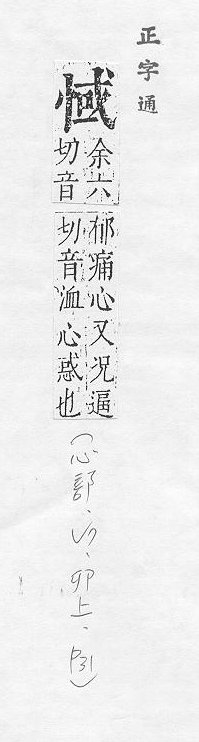 正字通
惐
余六
切音
郁痛心又況逼
切音洫心惑也
(心部、卯上、P31)